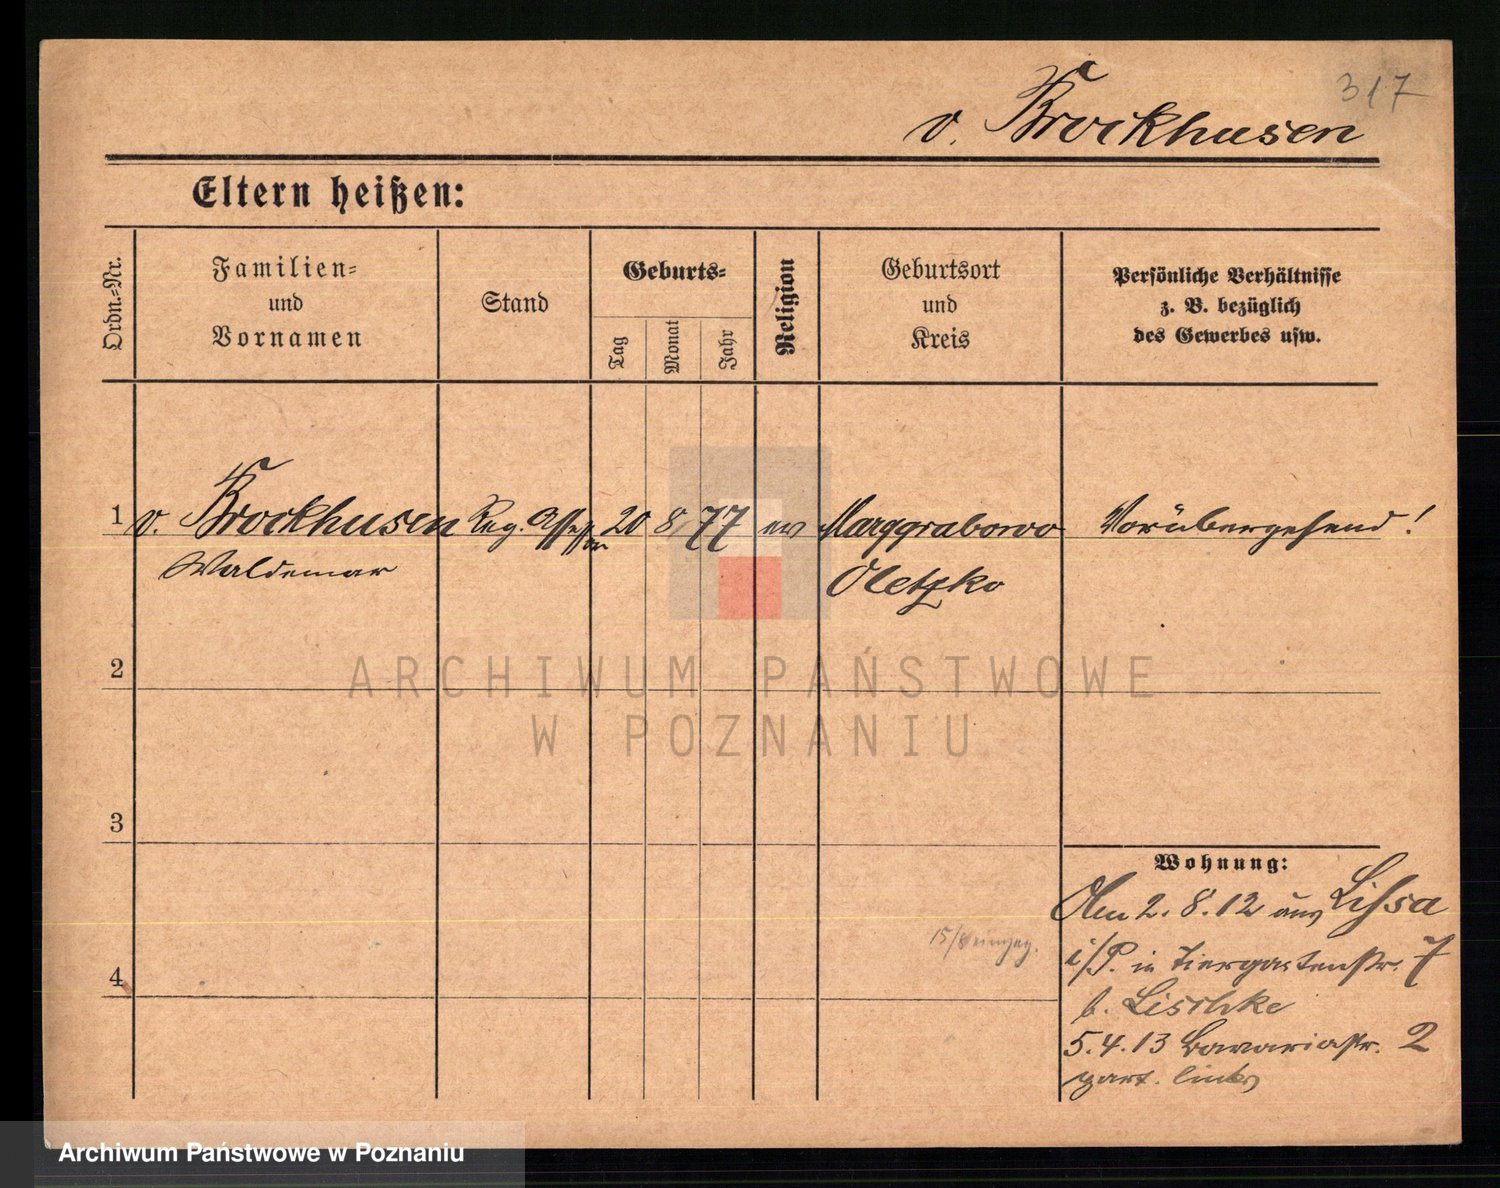 317
v. Brockhusen
Eltern heißen:
Ordn.=Nr.
Familien=
und
Vornamen
Stand
Geburts=
Tag
Monat
Jahr
Religion
Geburtsort
und
Kreis
Persönliche Verhältnisse
z. B. bezüglich
des Gewerbes usw.
1 v. Brockhusen Reg. Assessor 20 8 77 ev Marggrabowo Vorübergehend!
Waldemar Oletzko
2
3
4
Wohnung:
Am 2.8.12 aus Lissa
i/P. in Tiergartenstr. 7
b. Lischke
5.4.13 Bawariastr. 2
part. links
15/8
ARCHIWUM PAŃSTWOWE
W POZNANIU
Archiwum Państwowe w Poznaniu